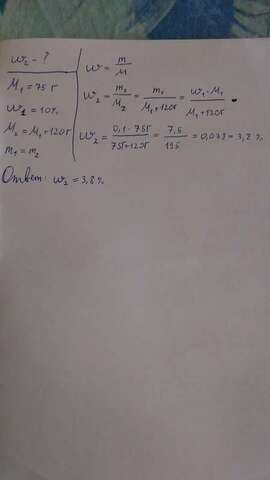 w₂ - ?
M₁ = 75 г
w₁ = 10%
M₂ = M₁ + 120г
m₁ = m₂
w = m/M
w₂ = m₂/M₂ = m₁/(M₁ + 120г) = w₁·M₁/(M₁ + 120г)
w₂ = 0,1 · 75г/(75г + 120г) = 7,5/195 = 0,038 = 3,8%
Ответ: w₂ = 3,8%